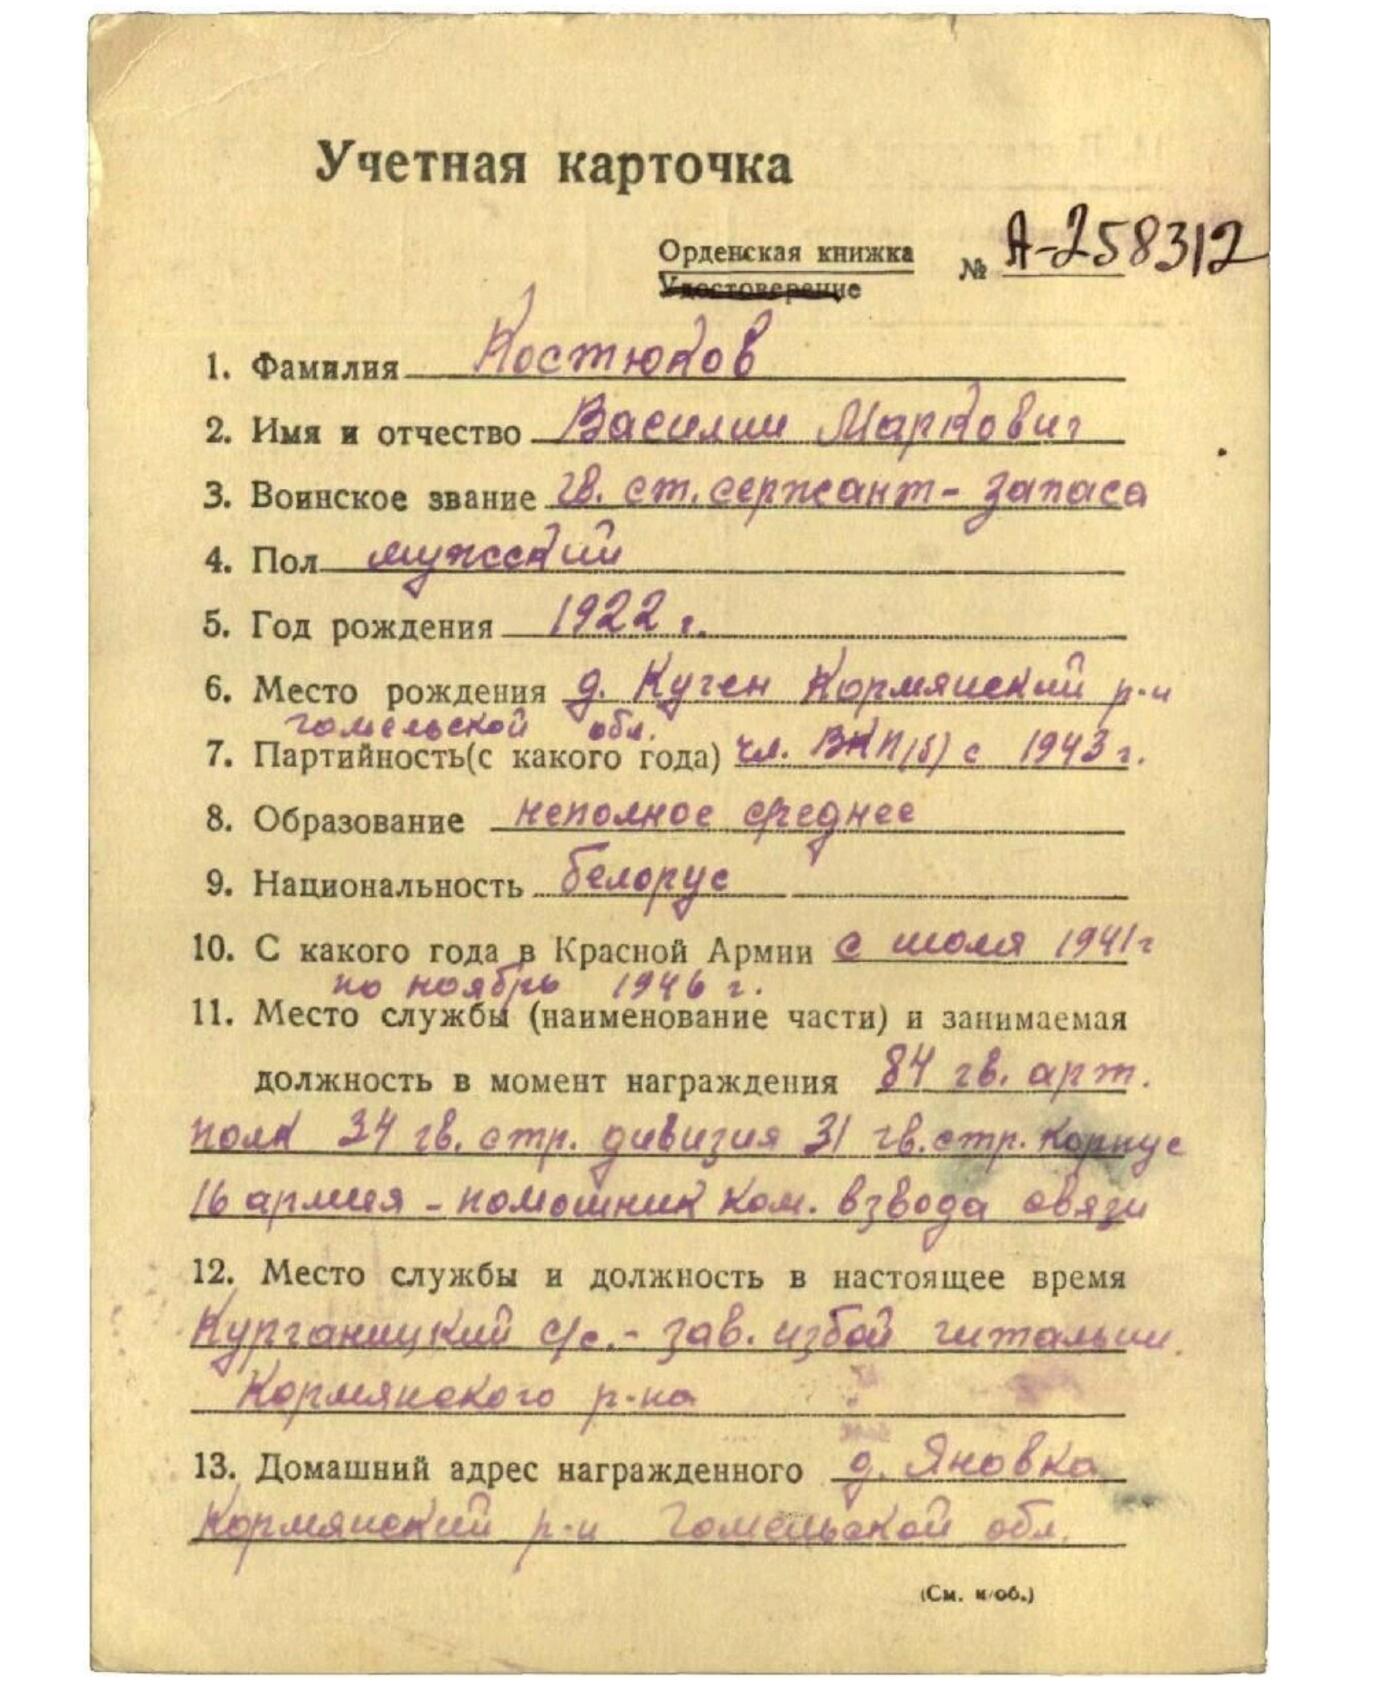 Учетная карточка
Орденская книжка № А-258312
Удостоверение
1. Фамилия Костюков
2. Имя и отчество Василии Маркович
3. Воинское звание гв. ст. сержант - запаса
4. Пол мужской
5. Год рождения 1922 г.
6. Место рождения д. Кучен Кормянский р-н
гомельской обл.
7. Партийность(с какого года) чл. ВКП(б) с 1943 г.
8. Образование неполное среднее
9. Национальность белорус
10. С какого года в Красной Армии с июля 1941 г
по ноябрь 1946 г.
11. Место службы (наименование части) и занимаемая
должность в момент награждения 84 гв. арт.
полк 34 гв. стр. дивизия 31 гв. стр. корпус
16 армия - помошник ком. взвода связи
12. Место службы и должность в настоящее время
Курганицкий с/с. - зав. избой читальни.
Кормянского р-на
13. Домашний адрес награжденного д. Яновка
Кормянский р-н Гомельской обл.
(См. н/об.)